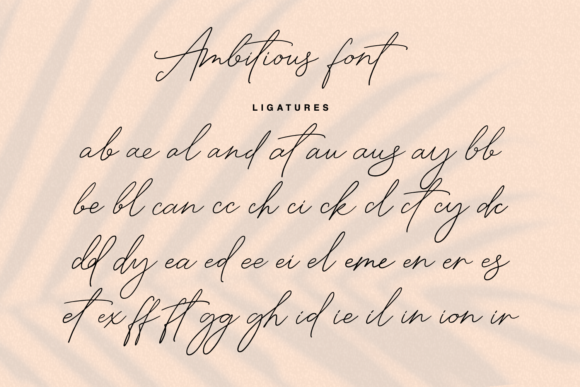 Ambitious font
LIGATURES
ab ae al and at au aus ay bb
be bl can cc ch ci ck cl ct cy dc
dd dy ea ed ee ei el eme en er es
et ex ff ft gg gh id ie il in ion ir